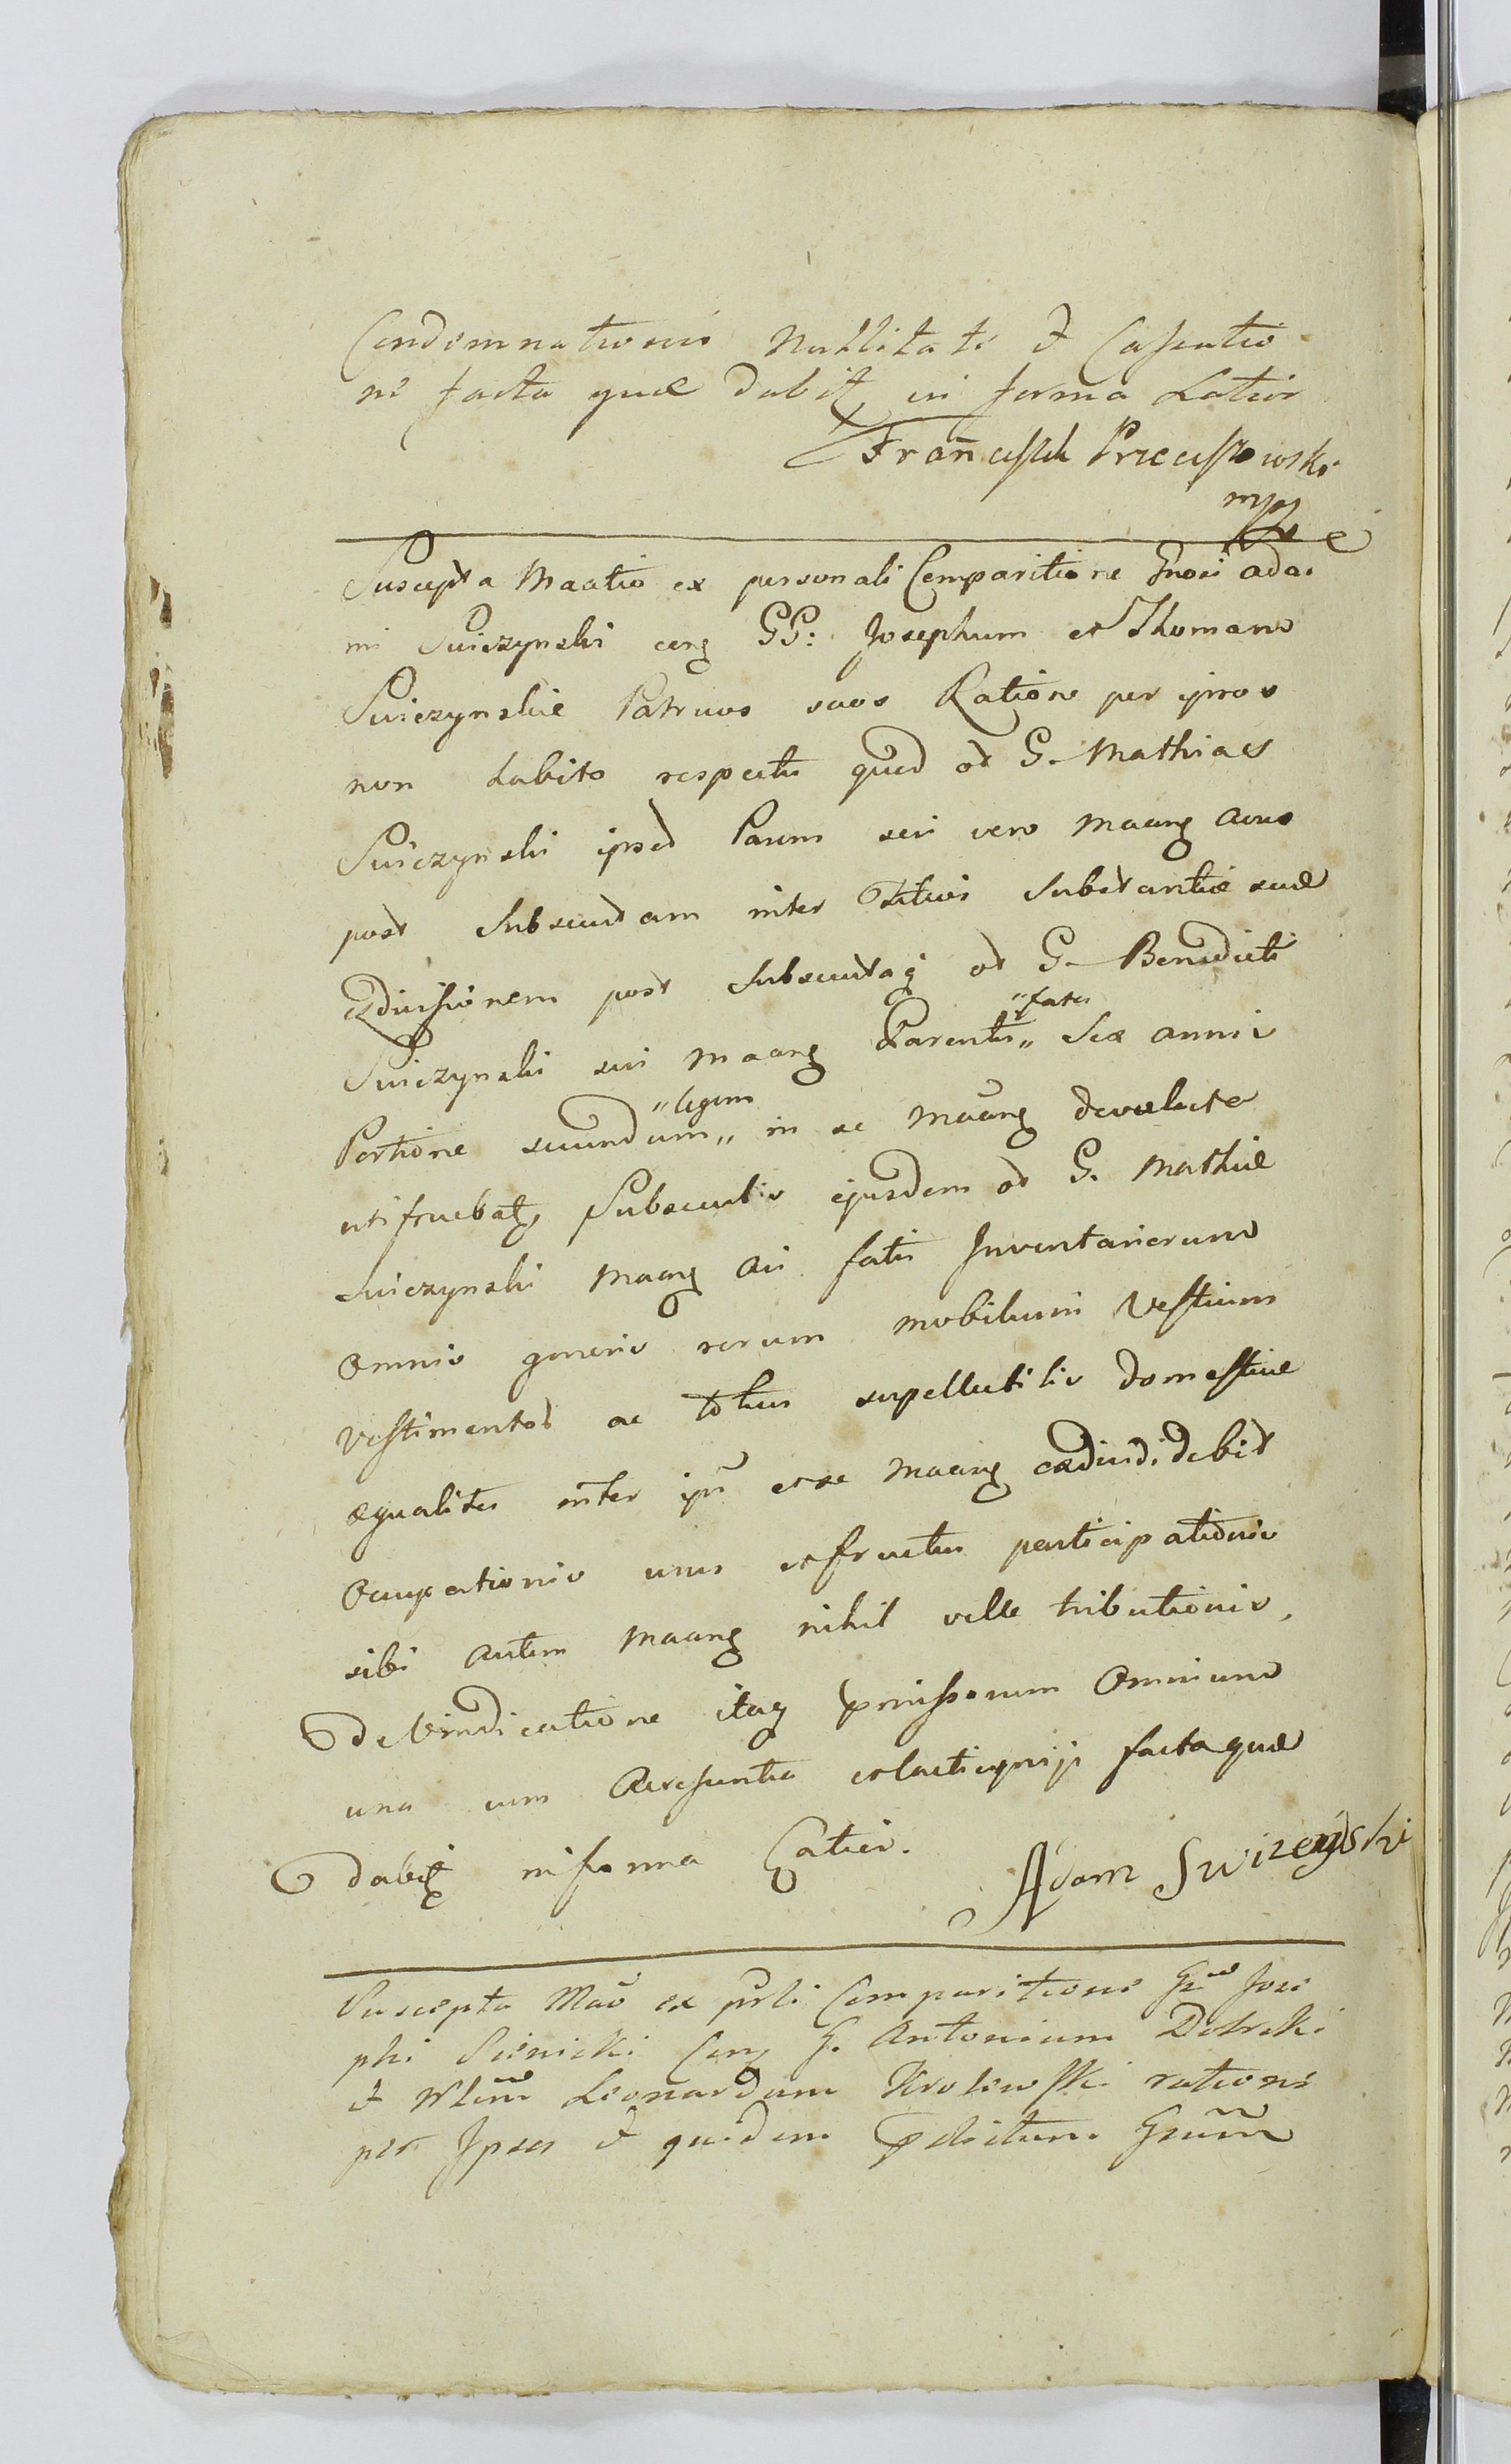 Condemnationis Nullitate et Cassatio
ne facta quæ dabitꝫ in forma Latior
Franciszek Przeciszowski
mpp
Suscepta Maatio ex personali Comparitione Gnosi Ada-
mi Swiezynski cong GG: Josephum et Thomam
Swiezynskie Patruos suos Ratione per ipsos
non habito respectu quod ol G. Mathias
Swiezynski ipsod Parens sui vero maang avus
post subsecutam inter Filios substantiæ suæ
exdivisionem post subsecutaq ol G. Benedicti
Swiezynski sui maang Parentis „fata„ sex annis
Portione secundum „legem„ in se maang devoluta
utifruebatꝫ, subsecutis ejusdem ol G. Mathiæ
Swiezynski maang Avi fatis Inventariorum
omnis generis rerum mobilium Vestium
vestimentos ac totius supellectilis domesticæ
æqualiter inter ips et se maang exdividi debit
occupationis usus et fructus participationis
sibi autem maang nihil velle tributionis,
de Vindicatione itaq præmissorum omnium
una cum facta quæ
dabitꝫ in forma Latior.
Adam Swizeyski
Suscepta Mao ex prli Comparitione Gsi Jose
phi Sienicki Cong G. Antonium Dolrski
et Leonardum Krolewski ratione
per Ipsos et quidem Gsum